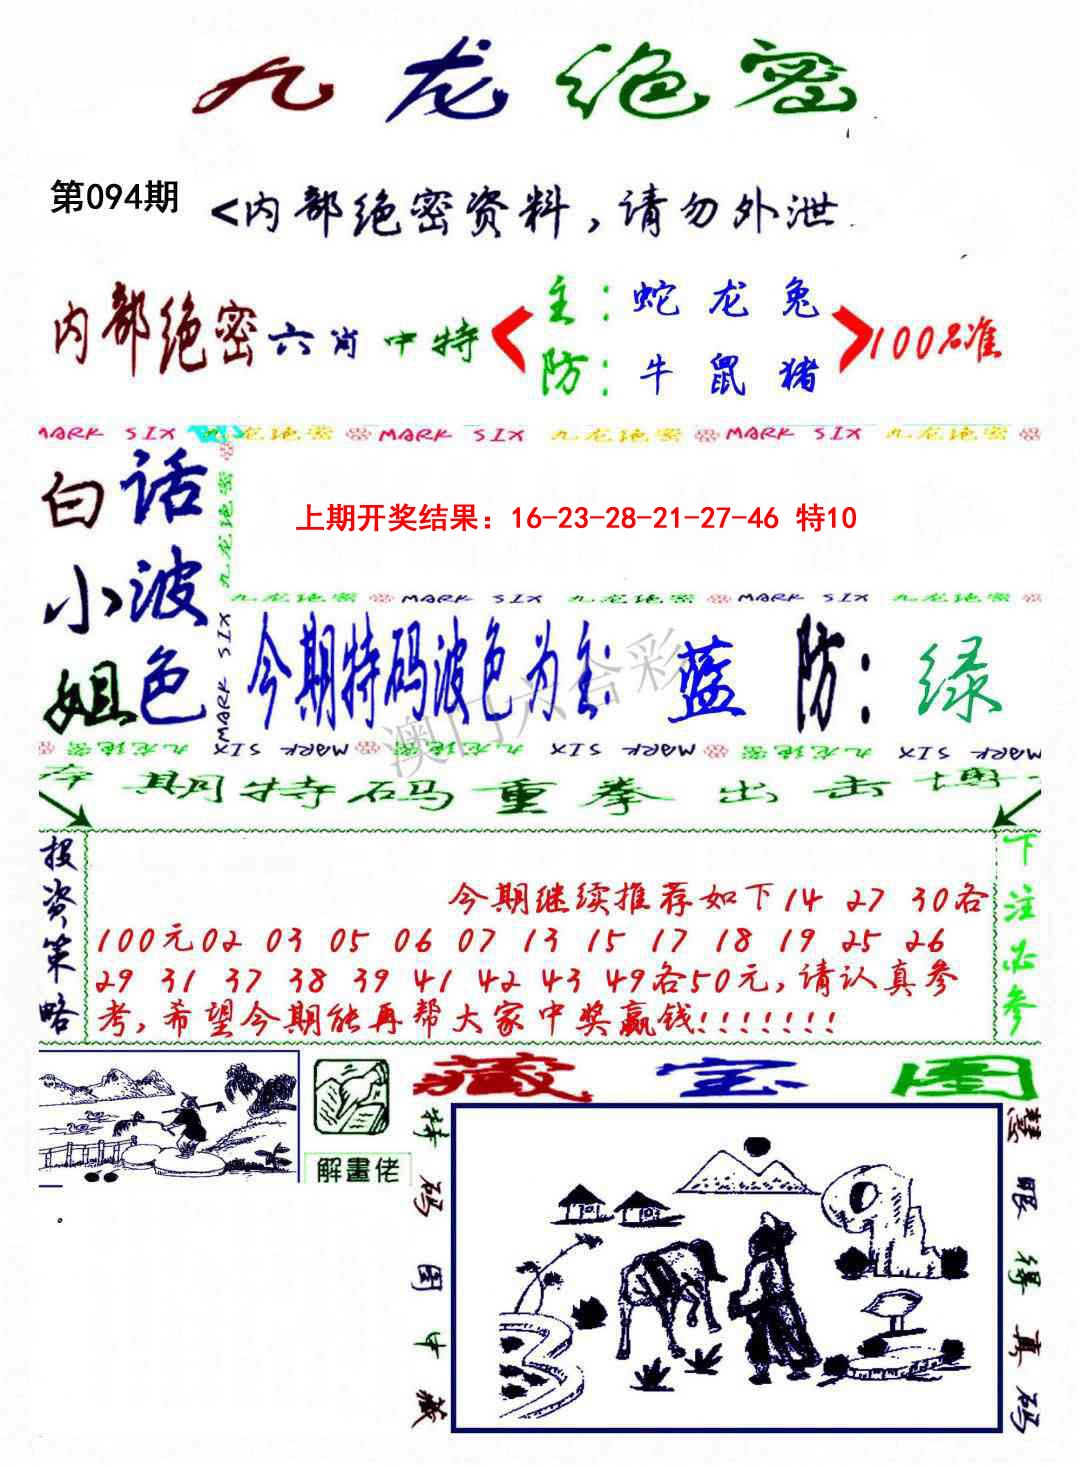 九龙绝密
第094期
<内部绝密资料,请勿外泄
内部绝密六肖中特
主:蛇 龙 兔
防:牛 鼠 猪
100名准
MARK SIX 九龙绝密 MARK SIX 九龙绝密 MARK SIX 九龙绝密
白话
小波
姐色
九龙绝密
MARK SIX
上期开奖结果：16-23-28-21-27-46 特10
九龙绝密 MARK SIX 九龙绝密 MARK SIX 九龙绝密
今期特码波色为主:蓝 防:绿
澳门六合彩
九龙绝密 MARK SIX 九龙绝密 MARK SIX 九龙绝密 MARK SIX
本期特码重拳出击
投资策略
今期继续推荐如下14 27 30各
100元02 03 05 06 07 13 15 17 18 19 25 26
29 31 37 38 39 41 42 43 49各50元,请认真参
考,希望今期能再帮大家中奖赢钱!!!!!!!
下注必参
解畫佬
藏宝图
特码图中藏
慧眼得真码